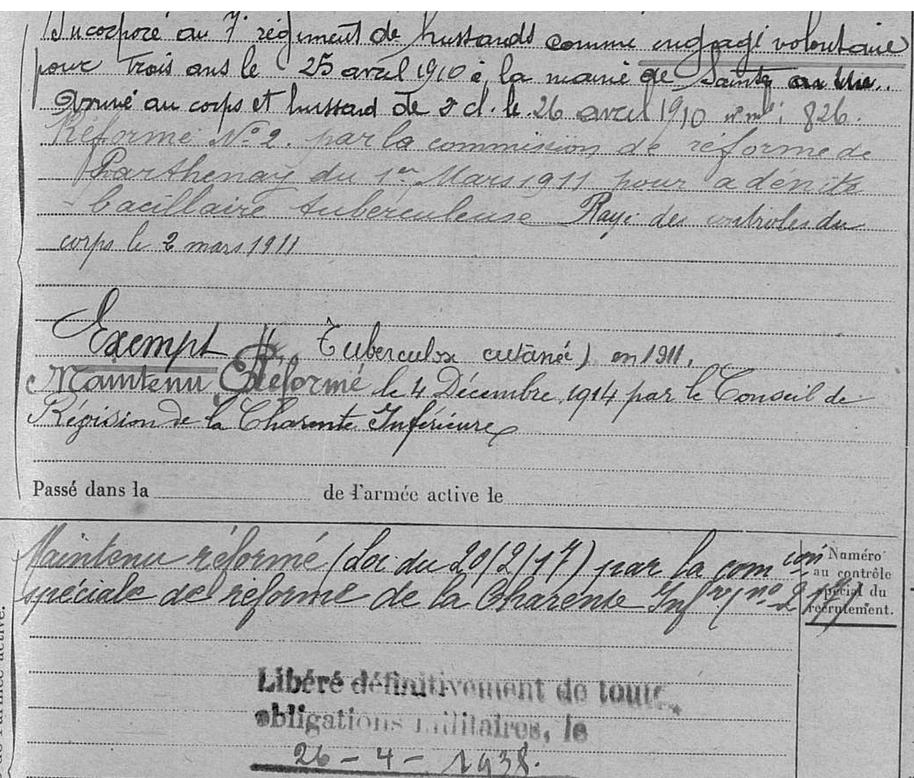 Incorporé au 7e régiment de hussards comme engagé volontaire
pour trois ans le 25 avril 1910 à la mairie de
Arrivé au corps et hussard de 2 cl. le 26 avril 1910 nº mle 826.
Réformé Nº 2. par la commission de réforme de
Parthenay du 1er Mars 1911 pour adénite
bacillaire tuberculeuse Rayé des contrôles du
corps le 2 mars 1911
Exempt (Tuberculose cutané) en 1911.
Maintenu Réformé le 4 Décembre 1914 par le Conseil de
Révision de la Charente Inférieure
Passé dans la de l'armée active le
Maintenu réformé (Loi du 20/2/17) par la comcon
spéciale de réforme de la Charente Infre
Numéro
au contrôle
spécial du
recrutement.
Libéré définitivement de toutes
obligations militaires, le
26 - 4 - 1938.
de l'armée active.